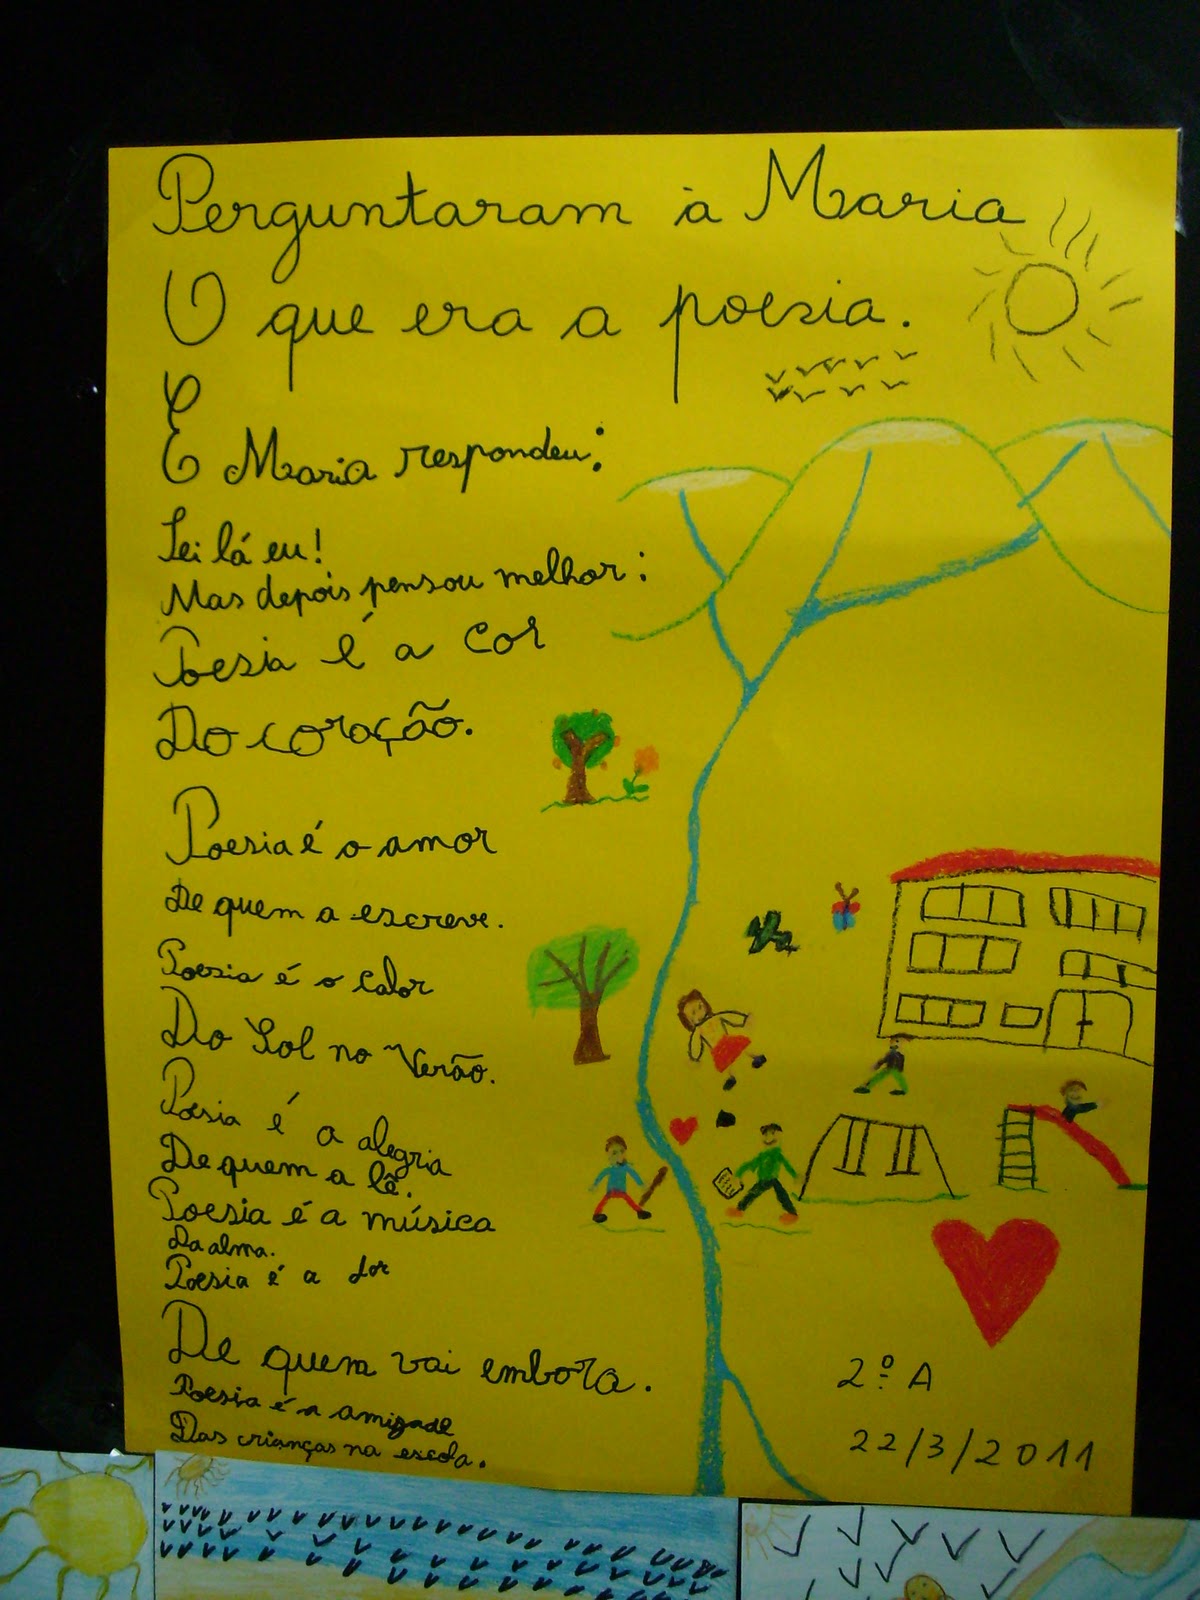 Perguntaram à Maria
O que era a poesia.
E Maria respondeu:
Sei lá eu!
Mas depois pensou melhor:
Poesia é a cor
Do coração.
Poesia é o amor
De quem a escreve.
Poesia é o calor
Do Sol no Verão.
Poesia é a alegria
De quem a lê.
Poesia é a música
Da alma.
Poesia é a dor
De quem vai embora.
Poesia é a amizade
Das crianças na escola.
2º A
22/3/2011